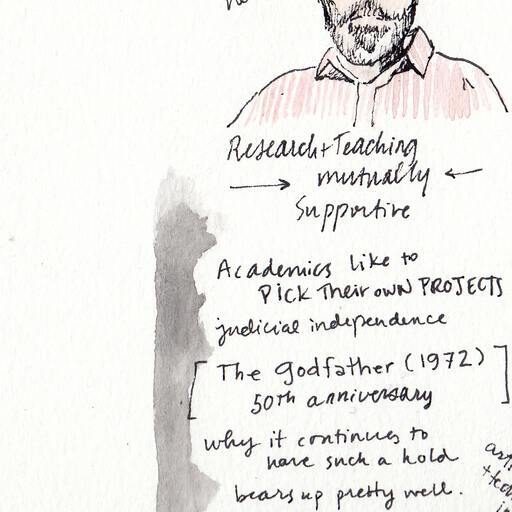 Research + Teaching
mutually
supportive
Academics like to
PICK Their OWN PROJECTS
judicial independence
[The Godfather (1972)
50th anniversary]
why it continues to
have such a hold
bears up pretty well.